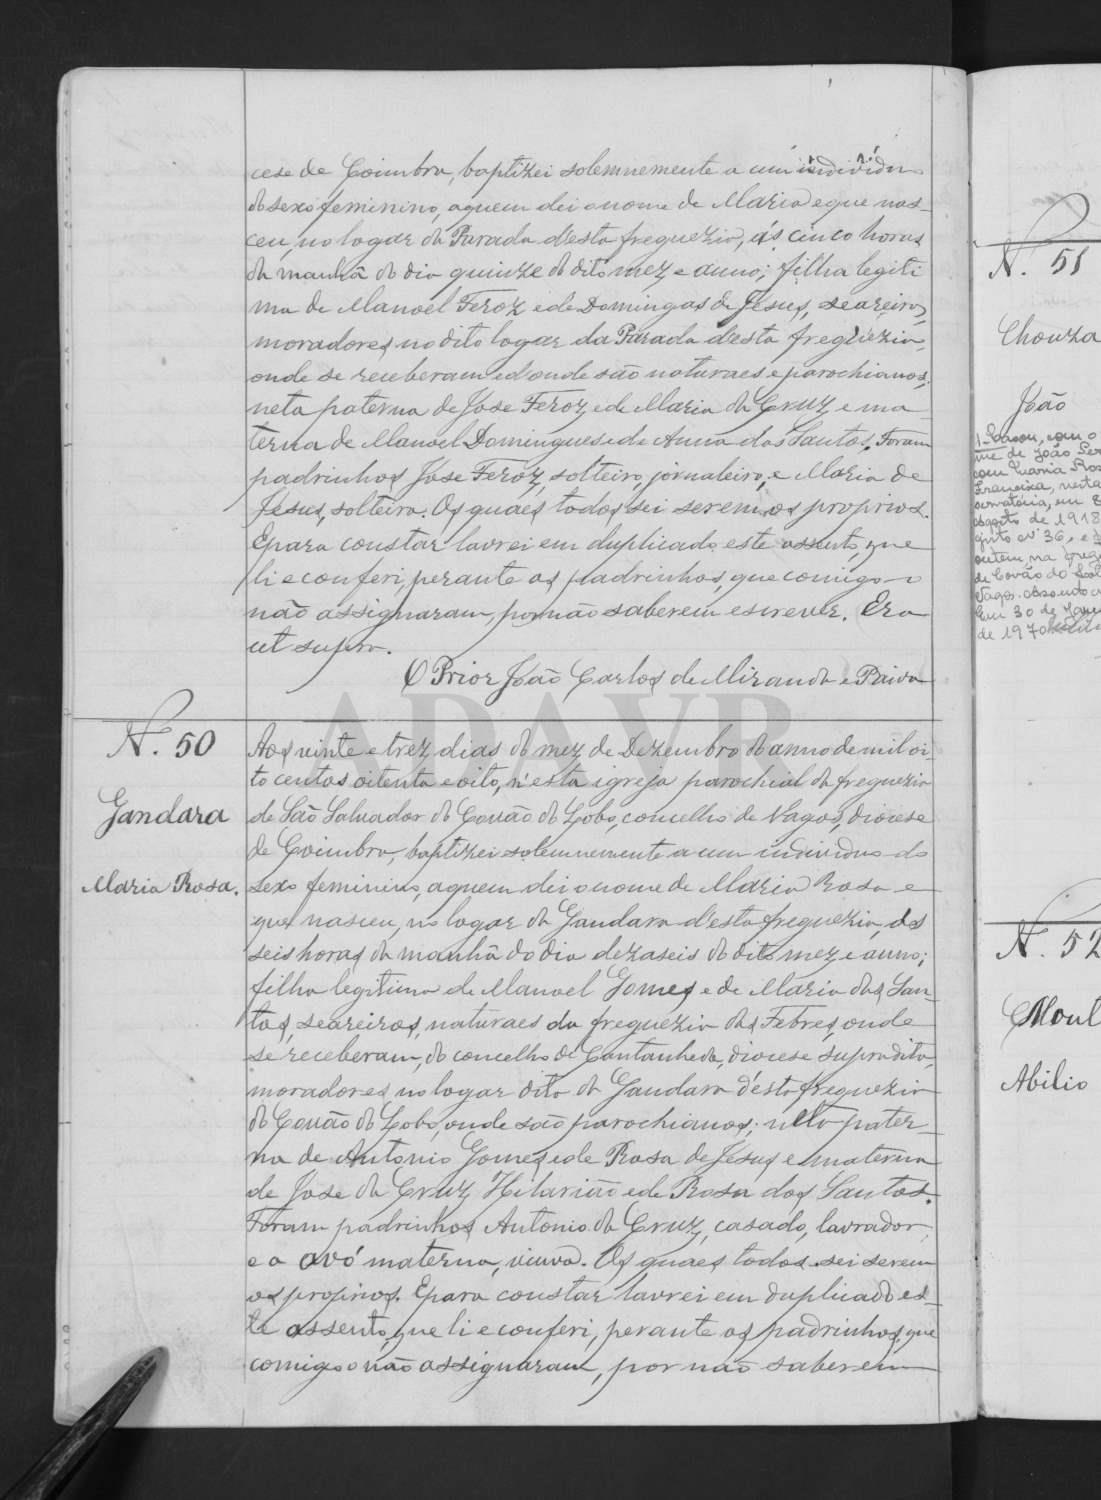 cese de Coimbra, baptizei solemnemente a um individuo
do sexo feminino, a quem dei o nome de Maria e que nas-
ceu, no logar da Parada d'esta freguezia, ás cinco horas
da manhã do dia quinze do dito mez e anno; filha legiti
ma de Manoel Feroz e de Domingas de Jesus, seareiros,
moradores no dito logar da Parada d'esta freguezia,
onde se receberam e d'onde são naturaes e parochianos;
neta paterna de Jose Feroz e de Maria da Cruz e ma
terna de Manoel Domingues e de Anna dos Santos. Foram
padrinhos Jose Feroz, solteiro, jornaleiro, e Maria de
Jesus, solteira. Os quaes todos sei serem os proprios.
E para constar lavrei em duplicado este assento, que
li e conferi, perante os padrinhos, que comigo o
não assignaram, por não saberem escrever. Era
ut supra.
O Prior João Carlos de Miranda e Paiva
N. 50
Gandara
Maria Rosa.
Aos vinte e trez dias do mez de Dezembro do anno de mil oi-
to centos oitenta e oito, n'esta igreja parochial da freguezia
de São Salvador do Covão do Lobo, concelho de Vagos, diocese
de Coimbra, baptizei solemnemente a um individuo do
sexo feminino, a quem dei o nome de Maria Rosa e
que nasceu, no logar da Gandara d'esta freguezia, ás
seis horas da manhã do dia dezaseis do dito mez e anno;
filha legitima de Manoel Gomes e de Maria dos San-
tos, seareiros, naturaes da freguezia das Febres, onde
se receberam, do concelho de Cantanhede, diocese supradita,
moradores no logar dito da Gandara d'esta freguezia
do Covão do Lobo, onde são parochianos; neta pater-
na de Antonio Gomes e de Rosa de Jesus e materna
de Jose da Cruz Hilarião e de Rosa dos Santos.
Foram padrinhos Antonio da Cruz, casado, lavrador,
e a avó materna, viuva. Os quaes todos sei serem
os proprios. E para constar lavrei em duplicado es-
te assento, que li e conferi, perante os padrinhos, que
comigo o não assignaram, por não saberem
ADAVR
N. 51
Chouza
João
N. 52
Abilio